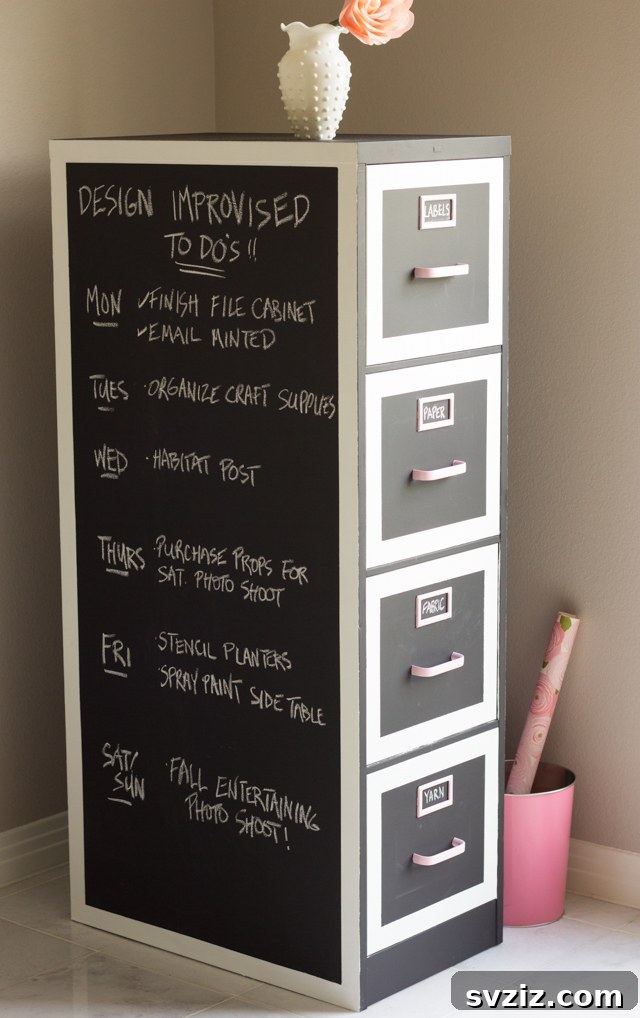 DESIGN IMPROVISED
TO DO'S !!
MON ✓FINISH FILE CABINET
✓EMAIL MINTED
TUES ·ORGANIZE CRAFT SUPPLIES
WED ·HABITAT POST
THURS ·PURCHASE PROPS FOR
SAT. PHOTO SHOOT
FRI ·STENCIL PLANTERS
·SPRAY PAINT SIDE TABLE
SAT/
SUN
·FALL ENTERTAINING
PHOTO SHOOT!
LABELS
PAPER
FABRIC
YARN
svziz.com